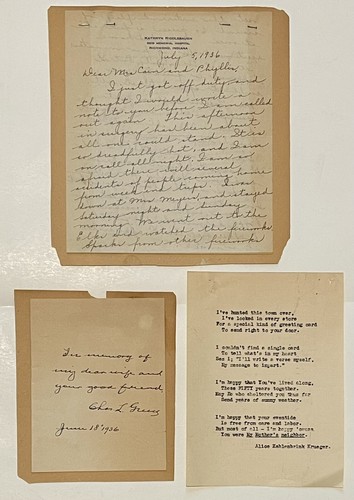 July 5, 1936
Dear Mrs Cain and Phyllis,
I just got off duty and
thought I would write a
note to you before I am called
out again. This afternoon
in surgery has been about
all one could stand. It is
so dreadfully hot, and I am
on call all night. I am so
afraid there will several
accidents of people coming home
from week end trips. I was
down at Mrs. Meyers and stayed
Saturday night and Sunday
morning. We went out to the
Elks and watched the fireworks
Sparks from other fireworks
In memory of
my dear wife and
your good friend,
Chas L
June 18 1936
I've hunted this town over,
I've looked in every store
For a special kind of greeting card
To send right to your door.
I couldn't find a single card
To tell what's in my heart
So I; "I'll write a verse myself,
My message to impart."
I'm happy that You've lived along,
These FIFTY years together.
May He who sheltered you thus far
Send years of sunny weather.
I'm happy that your eventide
Is free from care and labor.
But most of all - I'm happy 'cause
You were My Mother's neighbor.
Alice Krueger.